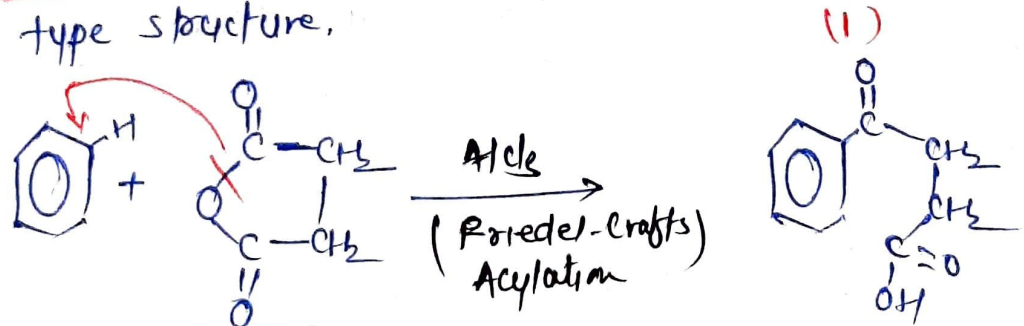 type structure.
(1)
H
O
C
CH2
+
O
C
CH2
O
AlCl3
(Friedel-Crafts)
Acylation
O
C
CH2
CH2
C
O
OH